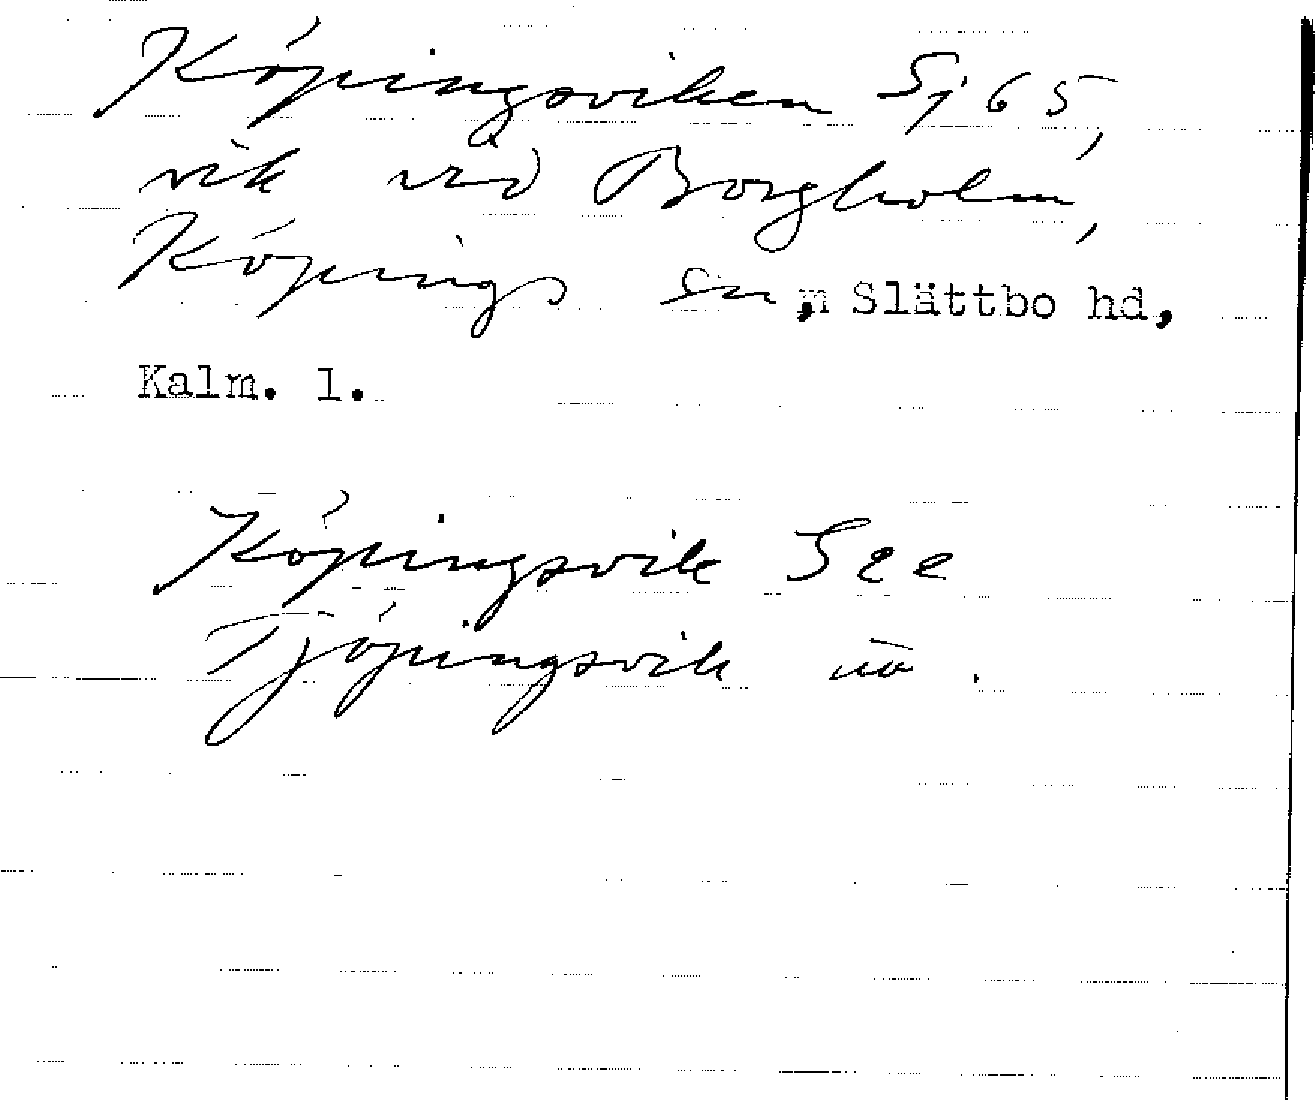 Köpingsviken Sj 65,
vik vid Borgholm,
Köpings sn, Slättbo hd,
Kalm. l.
Köpingsvik See
Tjöpingsvik